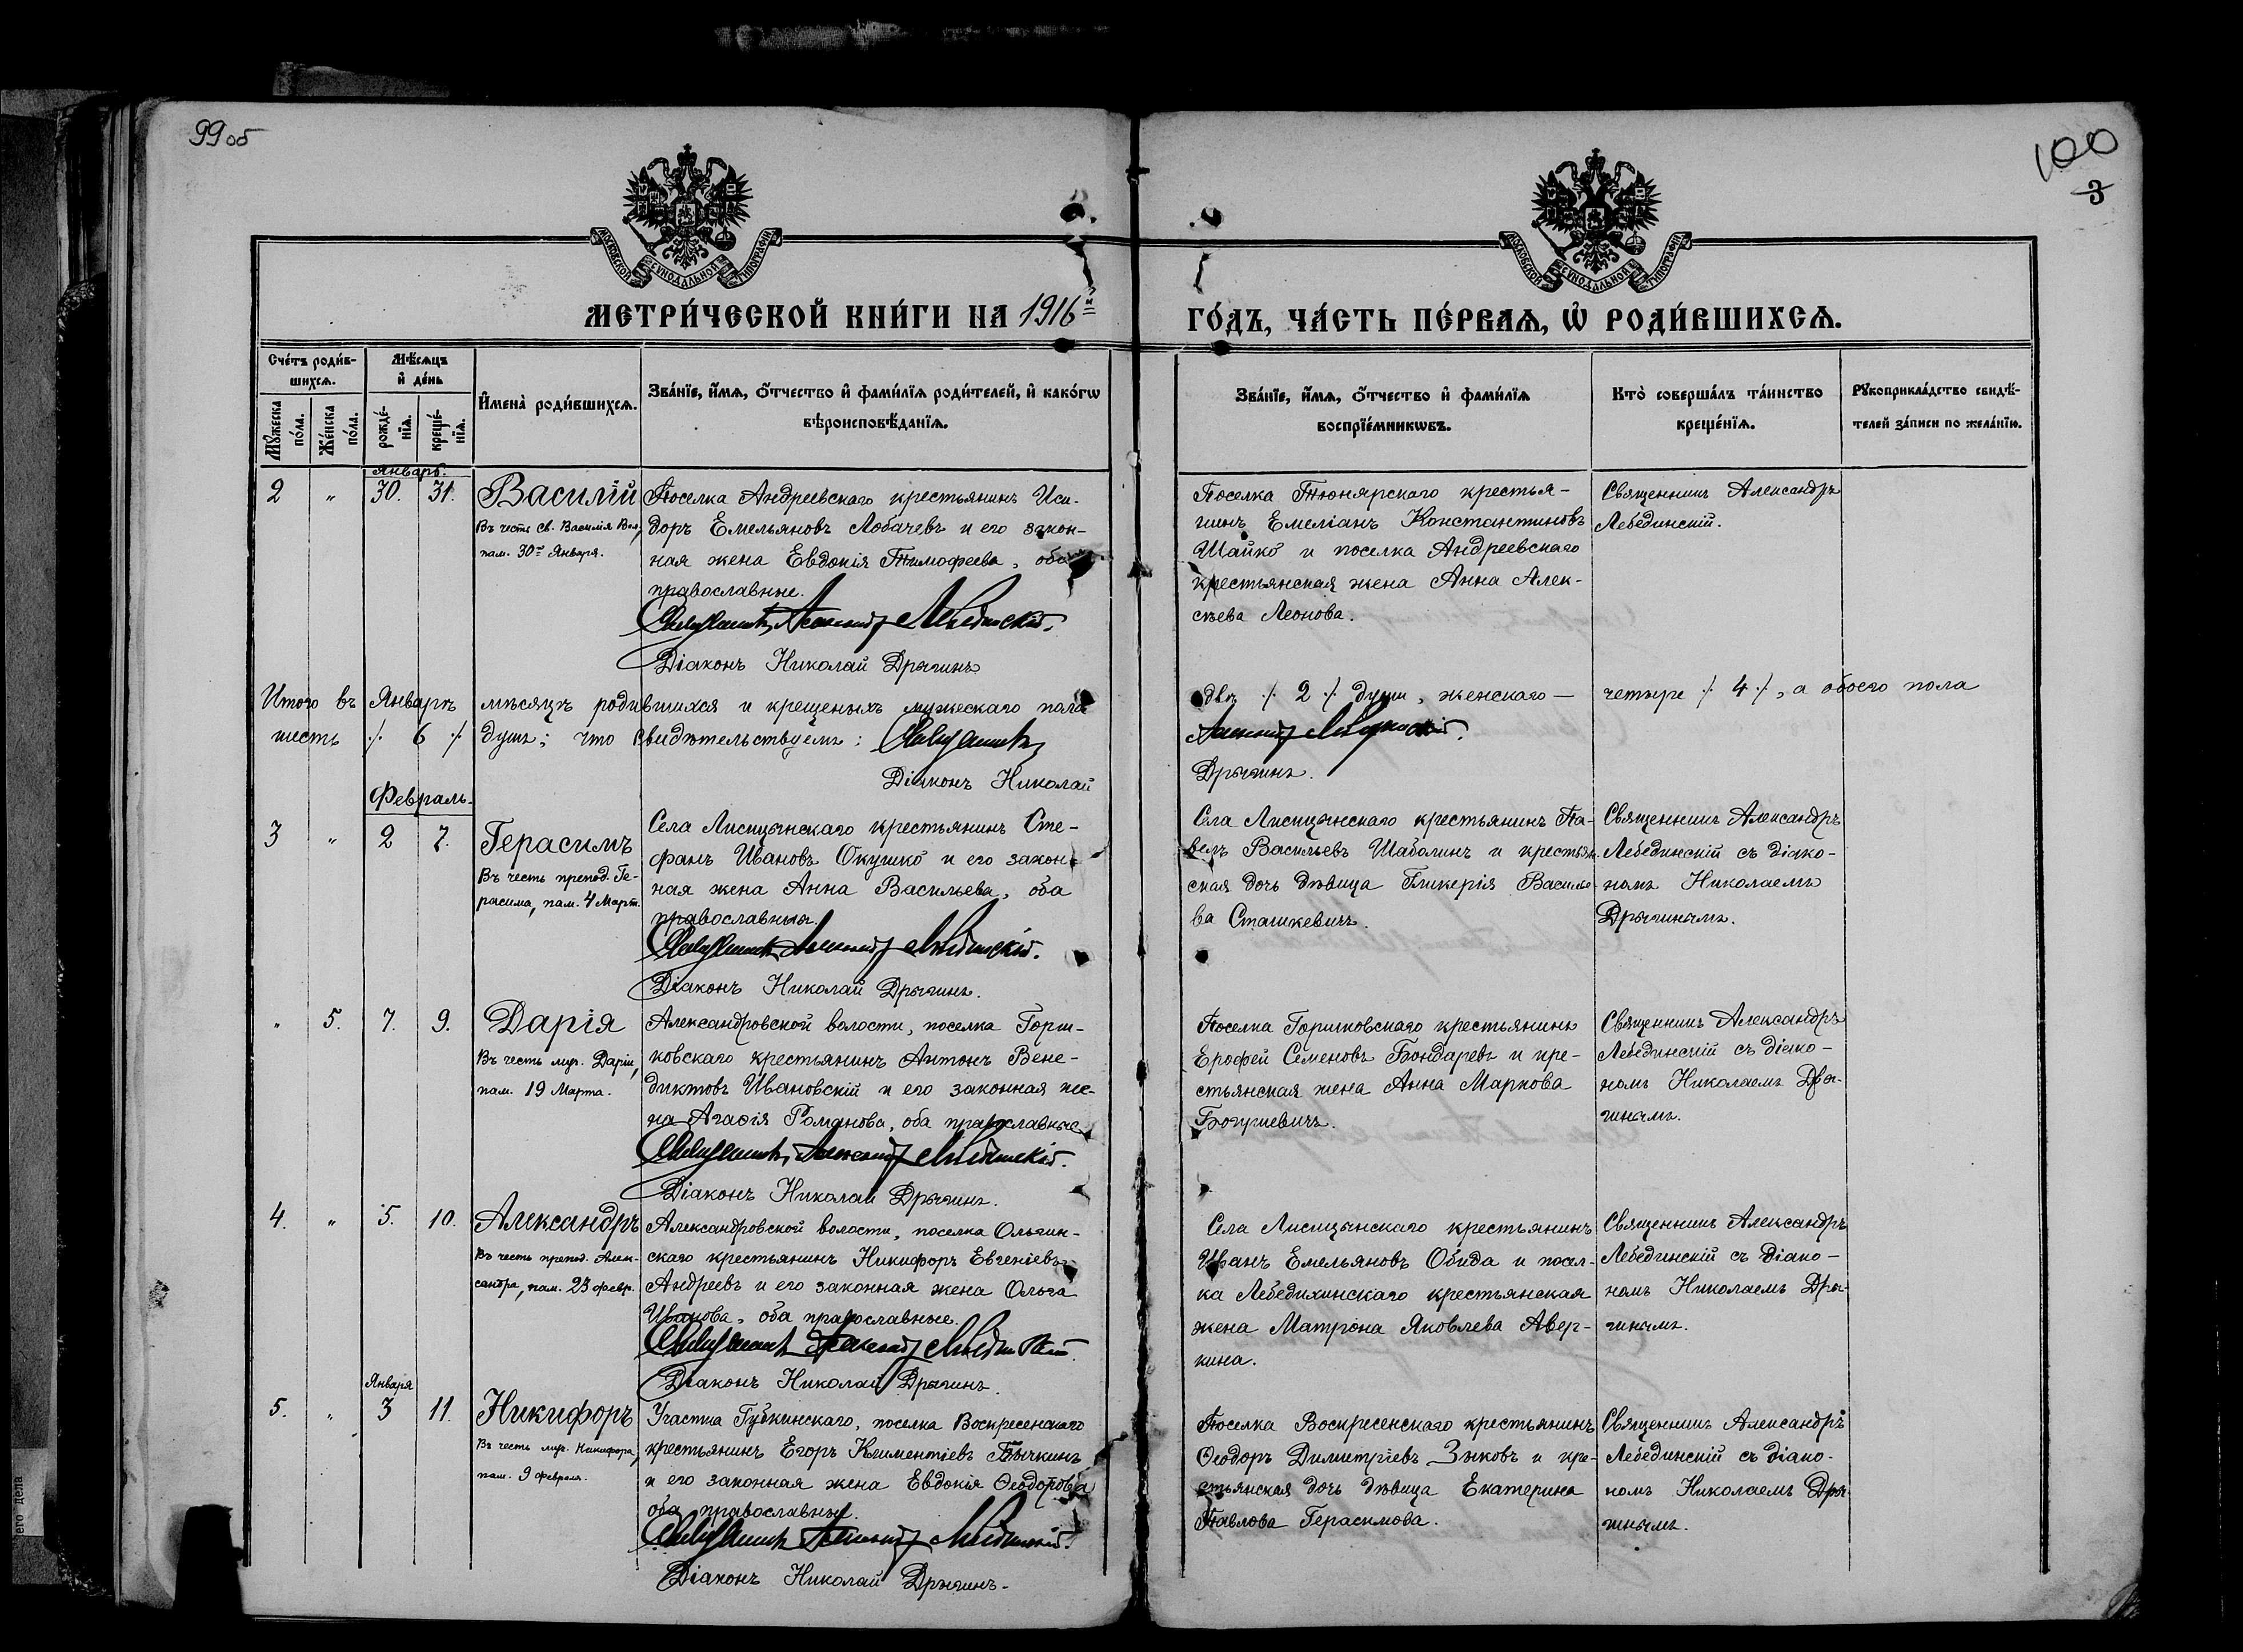 99об
100
3
МОСКОВСКОЙ СѴНОДАЛЬНОЙ ТИПОГРАФІИ
МОСКОВСКОЙ СѴНОДАЛЬНОЙ ТИПОГРАФІИ
МЕТРИ́ЧЕСКОЙ КНИ́ГИ НА 1916й
ГО́ДЪ, ЧА́СТЬ ПЕ́РВАѦ, Ѡ҆ РОДИ́ВШИХСѦ.
Сче́тъ роди́в-
шихсѧ.
Мꙋ́жеска
по́ла.
Же́нска
по́ла.
Мѣ́сѧцъ
и҆ де́нь
рожде́-
нїѧ.
креще́-
нїѧ.
И҆мена̀ роди́вшихсѧ.
Зва́нїе, и҆́мѧ, ѻ҆́тчество и҆ фами́лїѧ роди́телей, и҆ како́гѡ
вѣроисповѣ́данїѧ.
Зва́нїе, и҆́мѧ, ѻ҆́тчество и҆ фами́лїѧ
воспрїе́мникѡвъ.
Кто̀ соверша́лъ та́инство
креще́нїѧ.
Рꙋкоприкла́дство свидѣ́-
телей за́писи по жела́нїю.
Январь.
2 " 30. 31.
Василій
Въ честь св. Василія Вел,
пам. 30го Января.
Поселка Андреевскаго крестьянинъ Иси-
доръ Емельяновъ Лобачевъ и его закон-
ная жена Евдокія Тимофеева, оба
православные.
Священникъ Александръ Лебединскій.
Діаконъ Николай Дрыгинъ
Поселка Тюнярскаго крестья-
нинъ Емеліанъ Константиновъ
Шайко и поселка Андреевскаго
крестьянская жена Анна Алек-
сѣева Леонова.
Священникъ Александръ
Лебединскій.
Итого въ Январѣ мѣсяцѣ родившихся и крещеныхъ мужескаго пола двѣ ·/· 2 ·/· души, женскаго — четыре ·/· 4 ·/·, а обоего пола
шесть ·/· 6 ·/· душъ; что свидѣтельствуемъ: Священникъ Александръ Лебединскій.
Діаконъ Николай Дрыгинъ.
Февраль.
3 " 2 7.
Герасимъ
Въ честь препод. Ге-
расима, пам. 4 Март.
Села Лисицынскаго крестьянинъ Сте-
фанъ Ивановъ Окушко и его закон-
ная жена Анна Васильева, оба
православныя.
Священникъ Александръ Лебединскій.
Діаконъ Николай Дрыгинъ.
Села Лисицынскаго крестьянинъ Па-
велъ Васильевъ Шабалинъ и крестьян-
ская дочь дѣвица Гликерія Василье-
ва Сташкевичъ.
Священникъ Александръ
Лебединскій съ діако-
номъ Николаемъ
Дрыгинымъ.
" 5. 7. 9.
Дарія
Въ честь муч. Даріи,
пам. 19 Марта.
Александровской волости, поселка Горш-
ковскаго крестьянинъ Антонъ Вене-
диктовъ Ивановскій и его законная же-
на Агафія Романова, оба православные
Священникъ Александръ Лебединскій.
Діаконъ Николай Дрыгинъ.
Поселка Горшковскаго крестьянинъ
Ерофей Семеновъ Бондаревъ и кре-
стьянская жена Анна Маркова
Богушевичъ.
Священникъ Александръ
Лебединскій съ діако-
номъ Николаемъ Дры-
гинымъ.
4. " 5. 10.
Александръ
Въ честь препод. Алек-
сандра, пам. 23 февр.
Александровской волости, поселка Ольгин-
скаго крестьянинъ Никифоръ Евгеніевъ
Андреевъ и его законная жена Ольга
Иванова, оба православные.
Священникъ Александръ Лебединскій.
Діаконъ Николай Дрыгинъ.
Села Лисицынскаго крестьянинъ
Иванъ Емельяновъ Обида и посел-
ка Лебедихинскаго крестьянская
жена Матрона Яковлева Авер-
кина.
Священникъ Александръ
Лебединскій съ діако-
номъ Николаемъ Дры-
гинымъ.
Января
5. " 3 11.
Никифоръ
Въ честь муч. Никифора,
пам. 9 февраля.
Участка Губкинскаго, поселка Воскресенскаго
крестьянинъ Егоръ Климентіевъ Бычкинъ
и его законная жена Евдокія Ѳеодорова
оба православныя.
Священникъ Александръ Лебединскій.
Діаконъ Николай Дрыгинъ.
Поселка Воскресенскаго крестьянинъ
Ѳеодоръ Димитріевъ Зыковъ и кре-
стьянская дочь дѣвица Екатерина
Павлова Герасимова.
Священникъ Александръ
Лебединскій съ діако-
номъ Николаемъ Дры-
гинымъ.
его дела